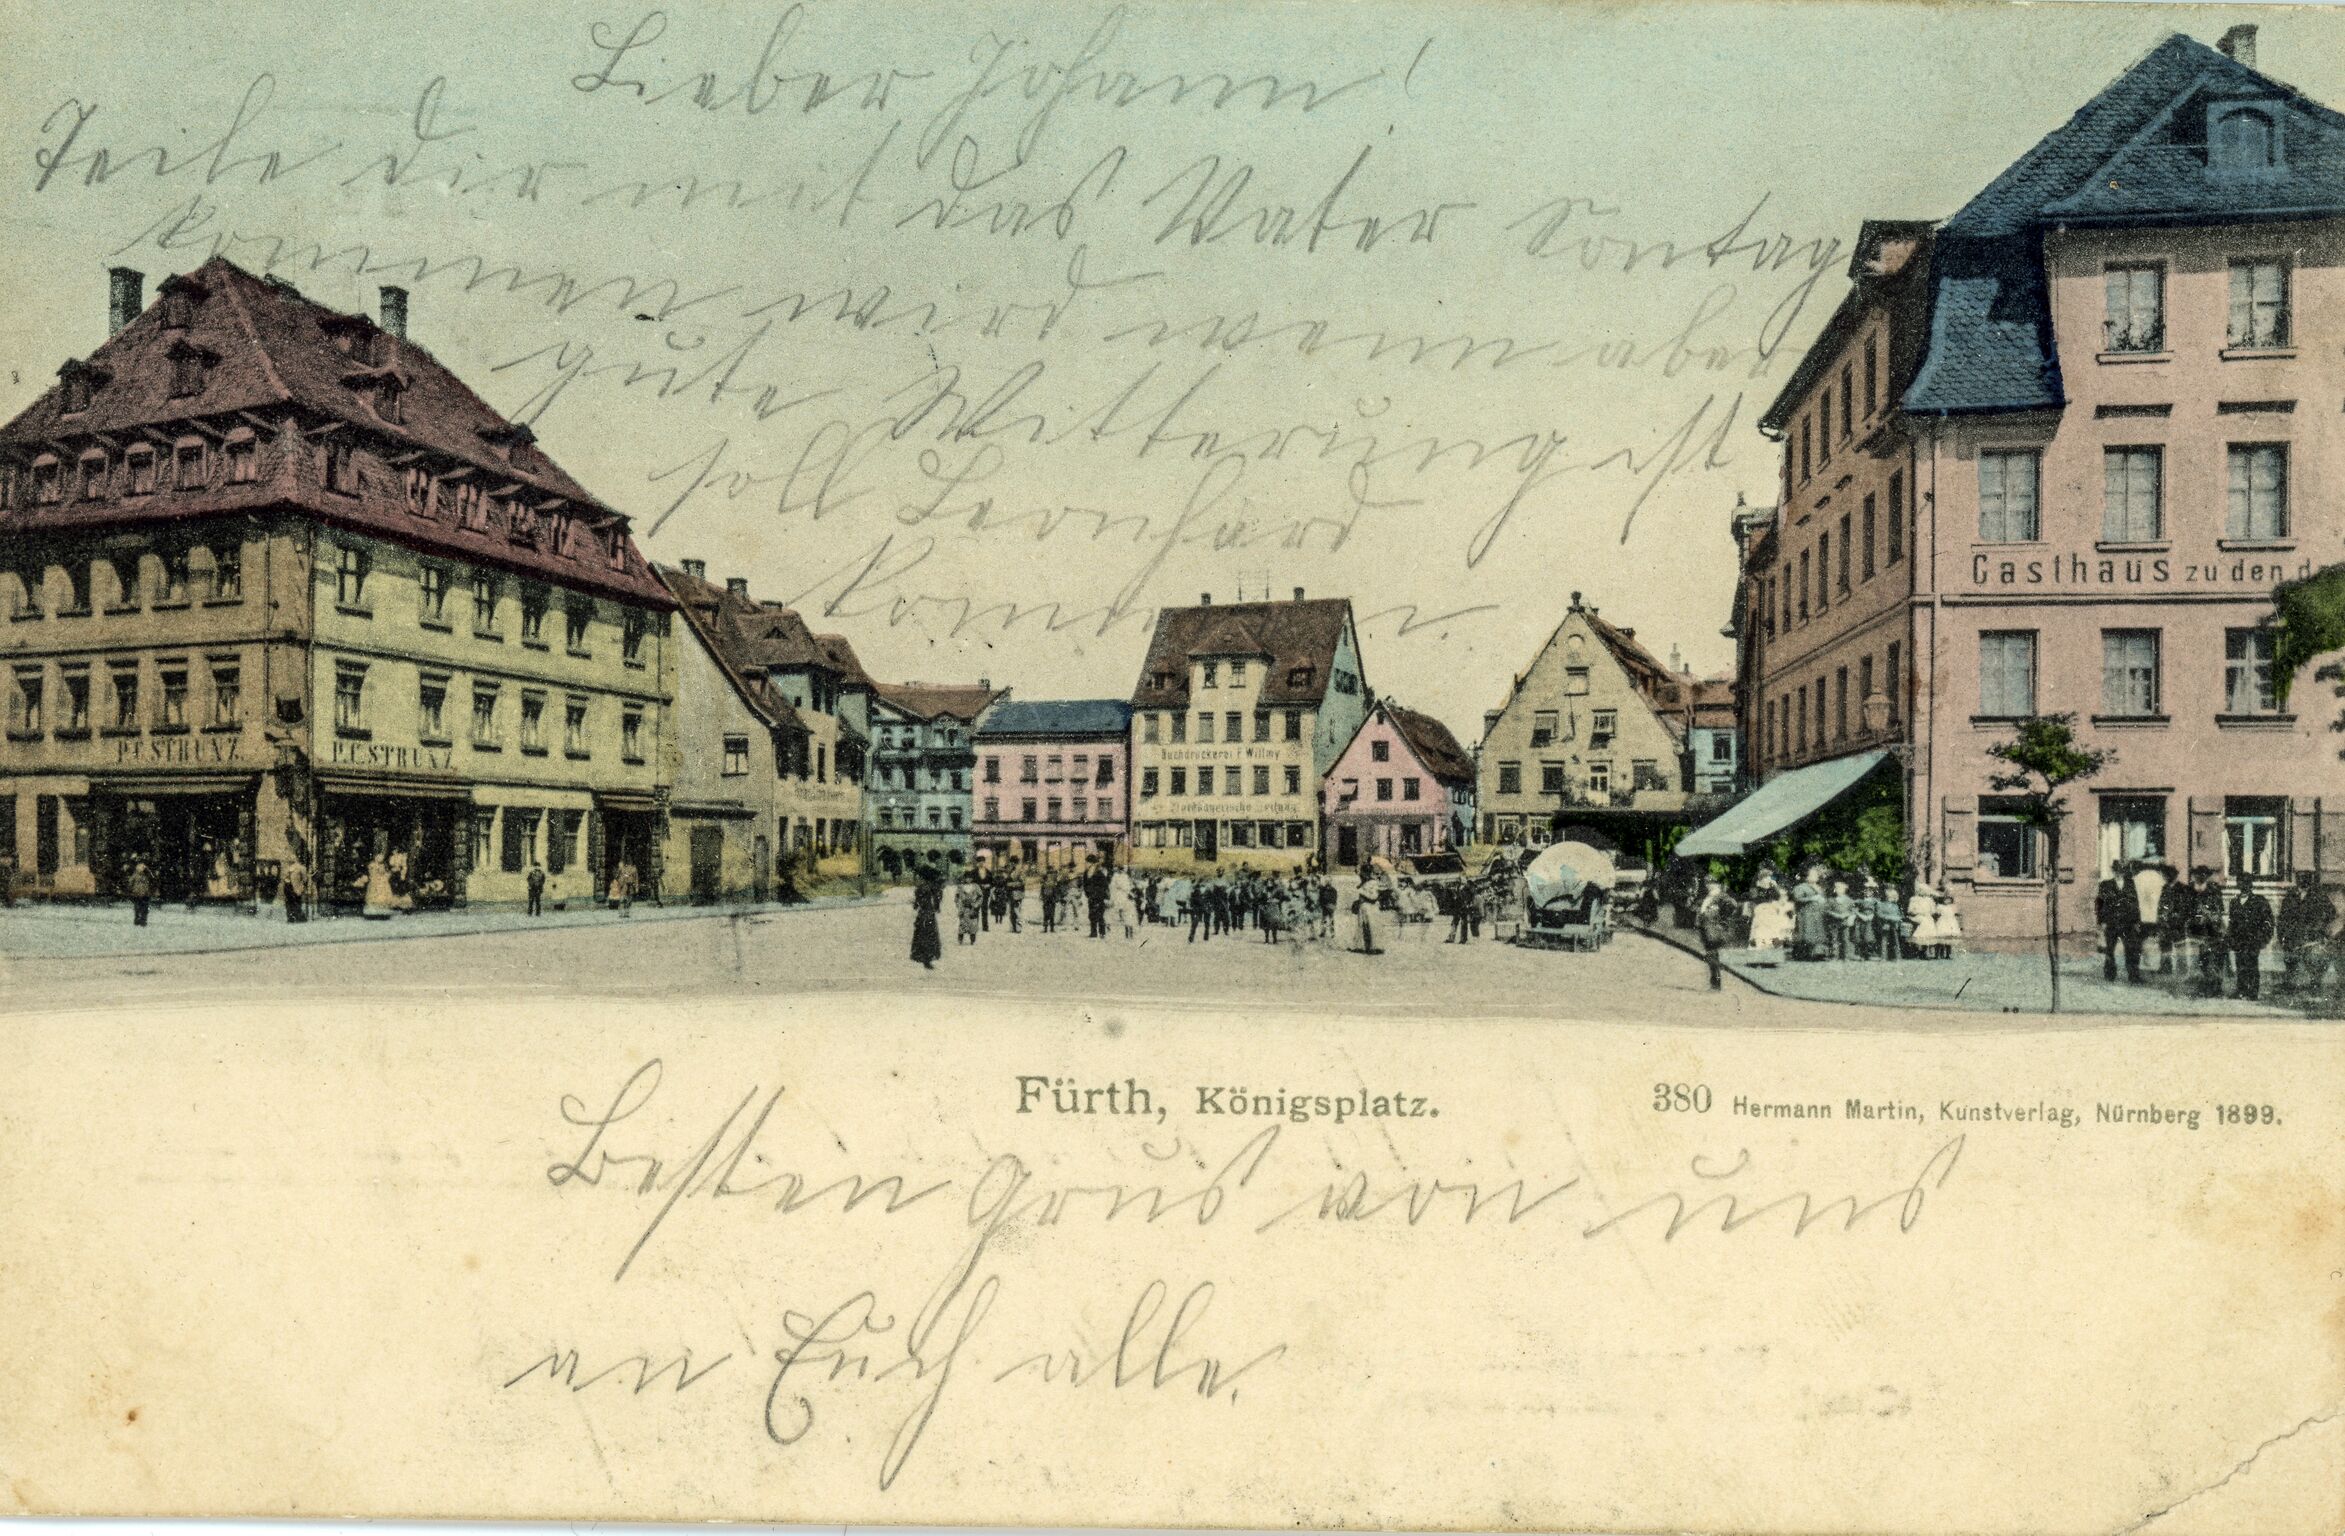 Lieber Johann!
Teile dir mit das Vater Sontag
kommen wird wenn aber
gute Witterung ist
soll Leonhard
kommen
P. C. STRUNZ.
P. C. STRUNZ.
Buchdruckerei F. Willmy
Nordbayerische Zeitung
Gasthaus zu den
Fürth, Königsplatz.
380 Hermann Martin, Kunstverlag, Nürnberg 1899.
Besten Grus von uns
an Euch alle.